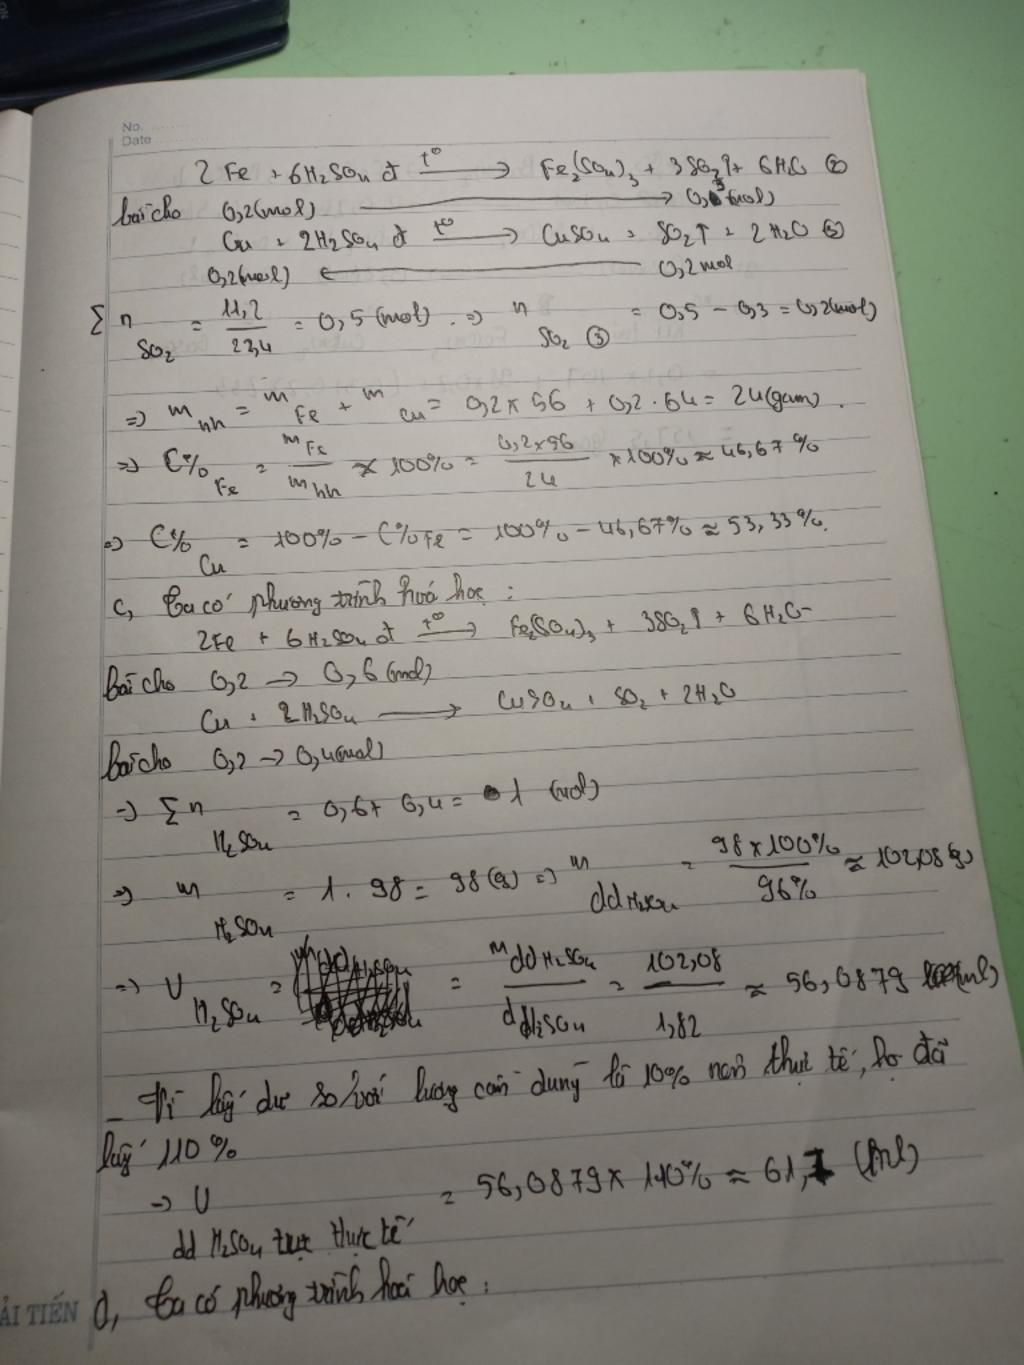 No.
Date
2 Fe + 6H₂SO₄ đ t° → Fe₂(SO₄)₃ + 3SO₂↑ + 6H₂O ②
bài cho 0,2(mol) → 0,3 (mol)
Cu + 2H₂SO₄ đ t° → CuSO₄ + SO₂↑ + 2H₂O ③
0,2(mol) ← 0,2mol
Σ n SO₂ = 11,2 / 22,4 = 0,5 (mol). => n SO₂ ③ = 0,5 - 0,3 = 0,2(mol)
=> m hh = m Fe + m Cu = 0,2 x 56 + 0,2 . 64 = 24(gam).
=> C% Fe = m Fe / m hh x 100% = 0,2 x 56 / 24 x 100% ≈ 46,67 %
=> C% Cu = 100% - C% Fe = 100% - 46,67% ≈ 53,33%.
c, Ta có phương trình hoá học :
2Fe + 6H₂SO₄ đ t° → Fe₂(SO₄)₃ + 3SO₂↑ + 6H₂O
bài cho 0,2 → 0,6 (mol)
Cu + 2H₂SO₄ → CuSO₄ + SO₂ + 2H₂O
bài cho 0,2 → 0,4(mol)
=> Σ n H₂SO₄ = 0,6 + 0,4 = 1 (mol)
=> m H₂SO₄ = 1 . 98 = 98 (g) => m dd H₂SO₄ = 98 x 100% / 96% ≈ 102,08 (g)
=> V H₂SO₄ = = m dd H₂SO₄ / d H₂SO₄ = 102,08 / 1,82 ≈ 56,0879 (ml)
- Vì lấy dư so với lượng cần dùng là 10% nên thực tế, họ đã
lấy 110 %
=> V dd H₂SO₄ thực tế = 56,0879 x 110% ≈ 61,7 (ml)
d, Ta có phương trình hoá học :
ẢI TIẾN